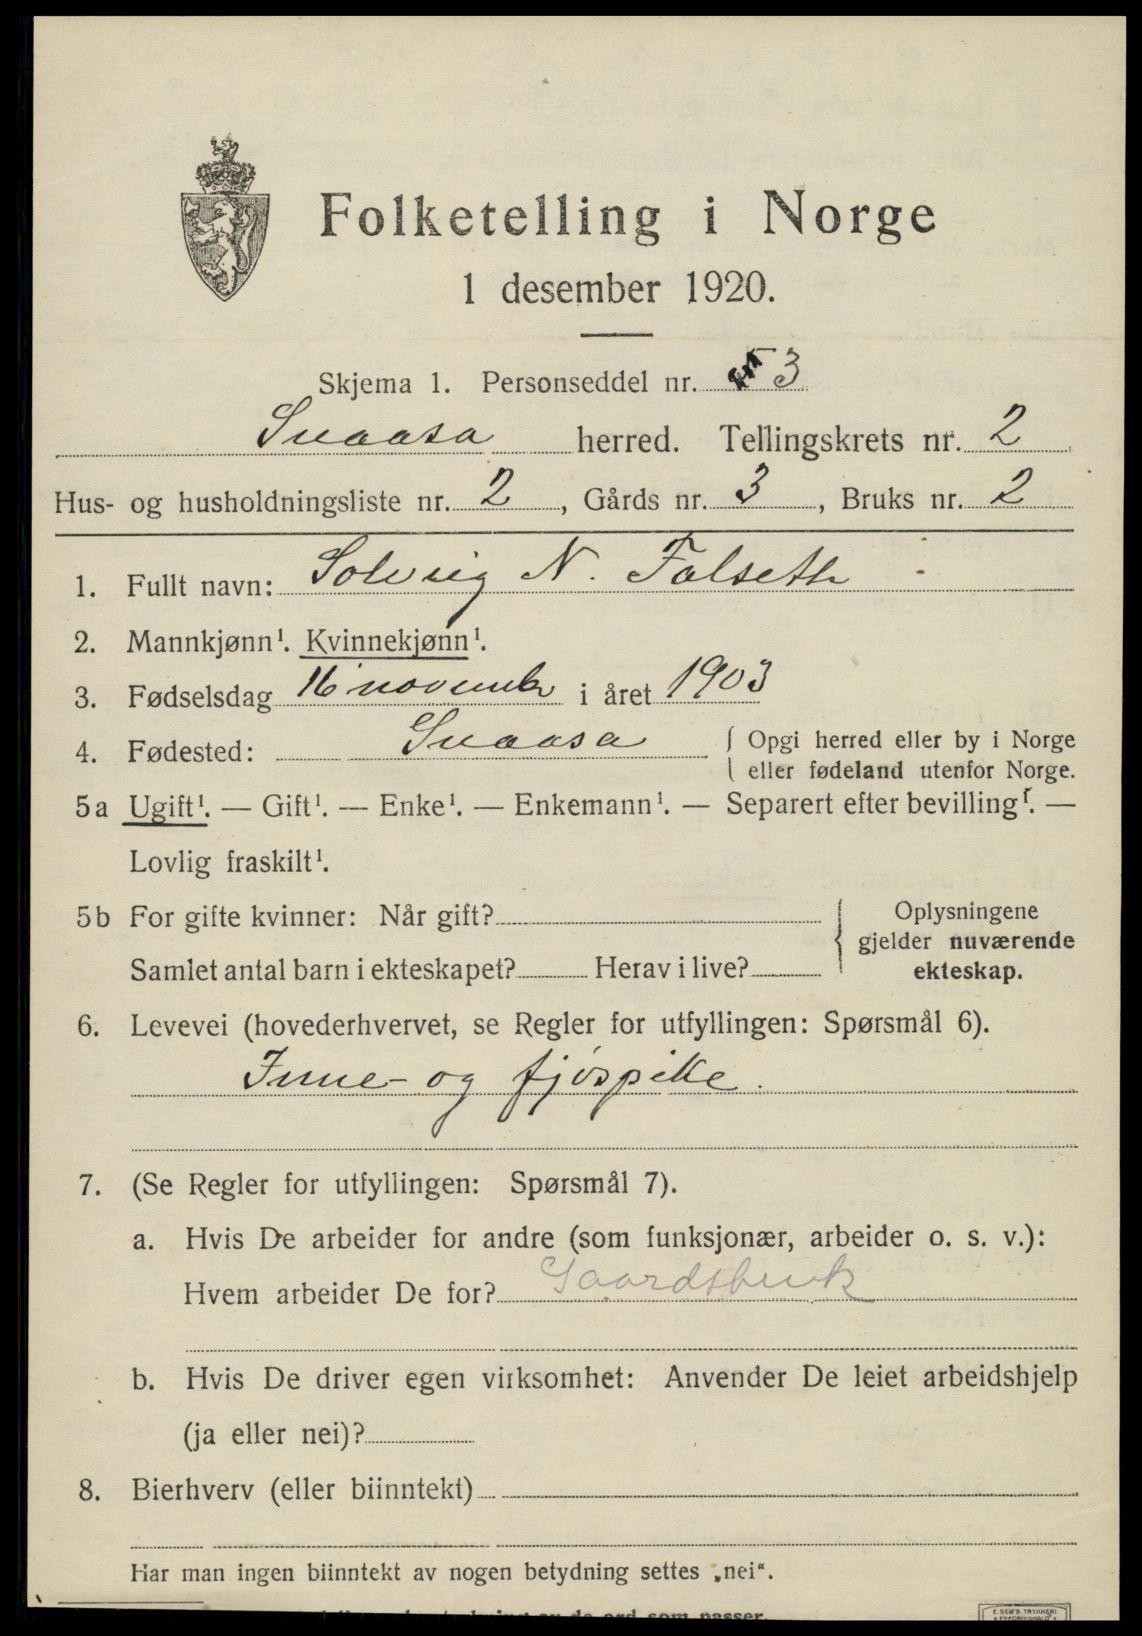 Folketelling i Norge
1 desember 1920.
Skjema 1. Personseddel nr. 3
Snaasa herred. Tellingskrets nr. 2
Hus- og husholdningsliste nr. 2, Gårds nr. 3, Bruks nr. 2
1. Fullt navn: Solveig N. Falseth
2. Mannkjønn¹. Kvinnekjønn¹.
3. Fødselsdag 16 november i året 1903
4. Fødested: Snaasa { Opgi herred eller by i Norge
eller fødeland utenfor Norge.
5a Ugift¹. — Gift¹. — Enke¹. — Enkemann¹. — Separert efter bevilling¹. —
Lovlig fraskilt¹.
5b For gifte kvinner: Når gift?
Samlet antal barn i ekteskapet? Herav i live?
{ Oplysningene
gjelder nuværende
ekteskap.
6. Levevei (hovederhvervet, se Regler for utfyllingen: Spørsmål 6).
Inne- og fjøspike.
7. (Se Regler for utfyllingen: Spørsmål 7).
a. Hvis De arbeider for andre (som funksjonær, arbeider o. s. v.):
Hvem arbeider De for? Gaardsbruk
b. Hvis De driver egen virksomhet: Anvender De leiet arbeidshjelp
(ja eller nei)?
8. Bierhverv (eller biinntekt)
Har man ingen biinntekt av nogen betydning settes „nei“.
de ord som passer.
E. SEM'S TRYKKERI
FREDRIKSHALD